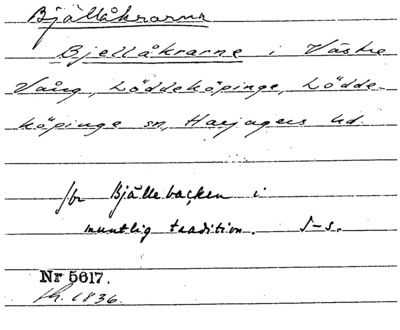 Bjällåkrarna
Bjellåkrarne i Västre
Vång, Löddeköpinge, Lödde-
köpinge sn, Harjagers hd.
jfr Bjällebacken i
muntlig tradition. S-s.
Nr 5617.
1836.